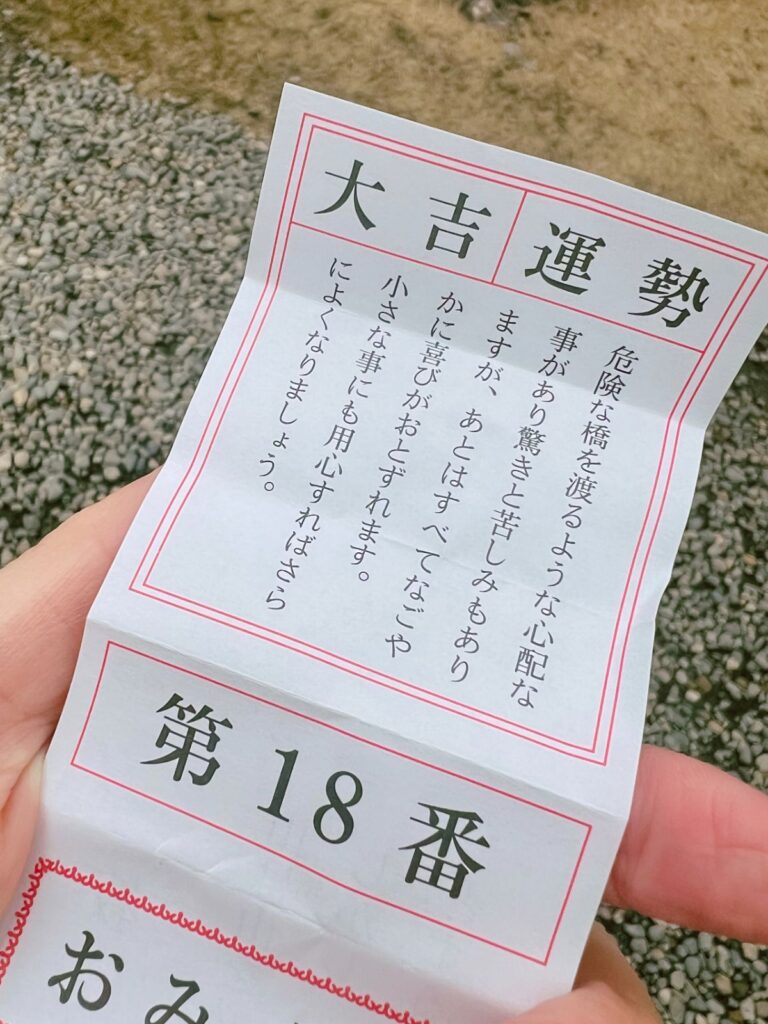 大吉運勢
危険な橋を渡るような心配な
事があり驚きと苦しみもあり
ますが、あとはすべてなごや
かに喜びがおとずれます。
小さな事にも用心すればさら
によくなりましょう。
第18番
おみ